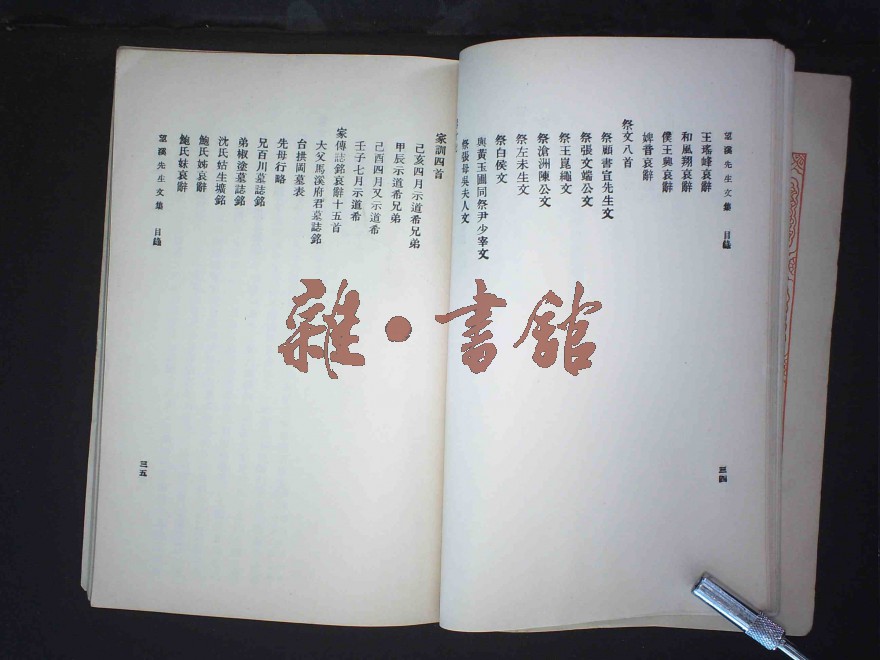 望溪先生文集 目錄
王瑤峰哀辭
和風翔哀辭
僕王興哀辭
婢音哀辭
祭文八首
祭顧書宣先生文
祭張文端公文
祭王崑繩文
祭滄洲陳公文
祭左未生文
祭白侯文
與黃玉圃同祭尹少宰文
祭張母吳夫人文
三四
家訓四首
己亥四月示道希兄弟
甲辰示道希兄弟
己酉四月又示道希
壬子七月示道希
家傳誌銘哀辭十五首
大父馬溪府君墓誌銘
台拱岡墓表
先母行略
兄百川墓誌銘
弟椒塗墓誌銘
沈氏姑生壙銘
鮑氏姊哀辭
鮑氏妹哀辭
望溪先生文集 目錄
三五
雜·書館